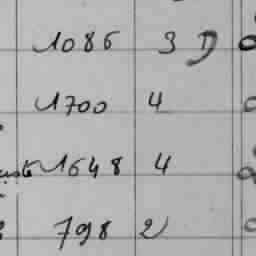 1086 3 D
1700 4
1648 4
798 2